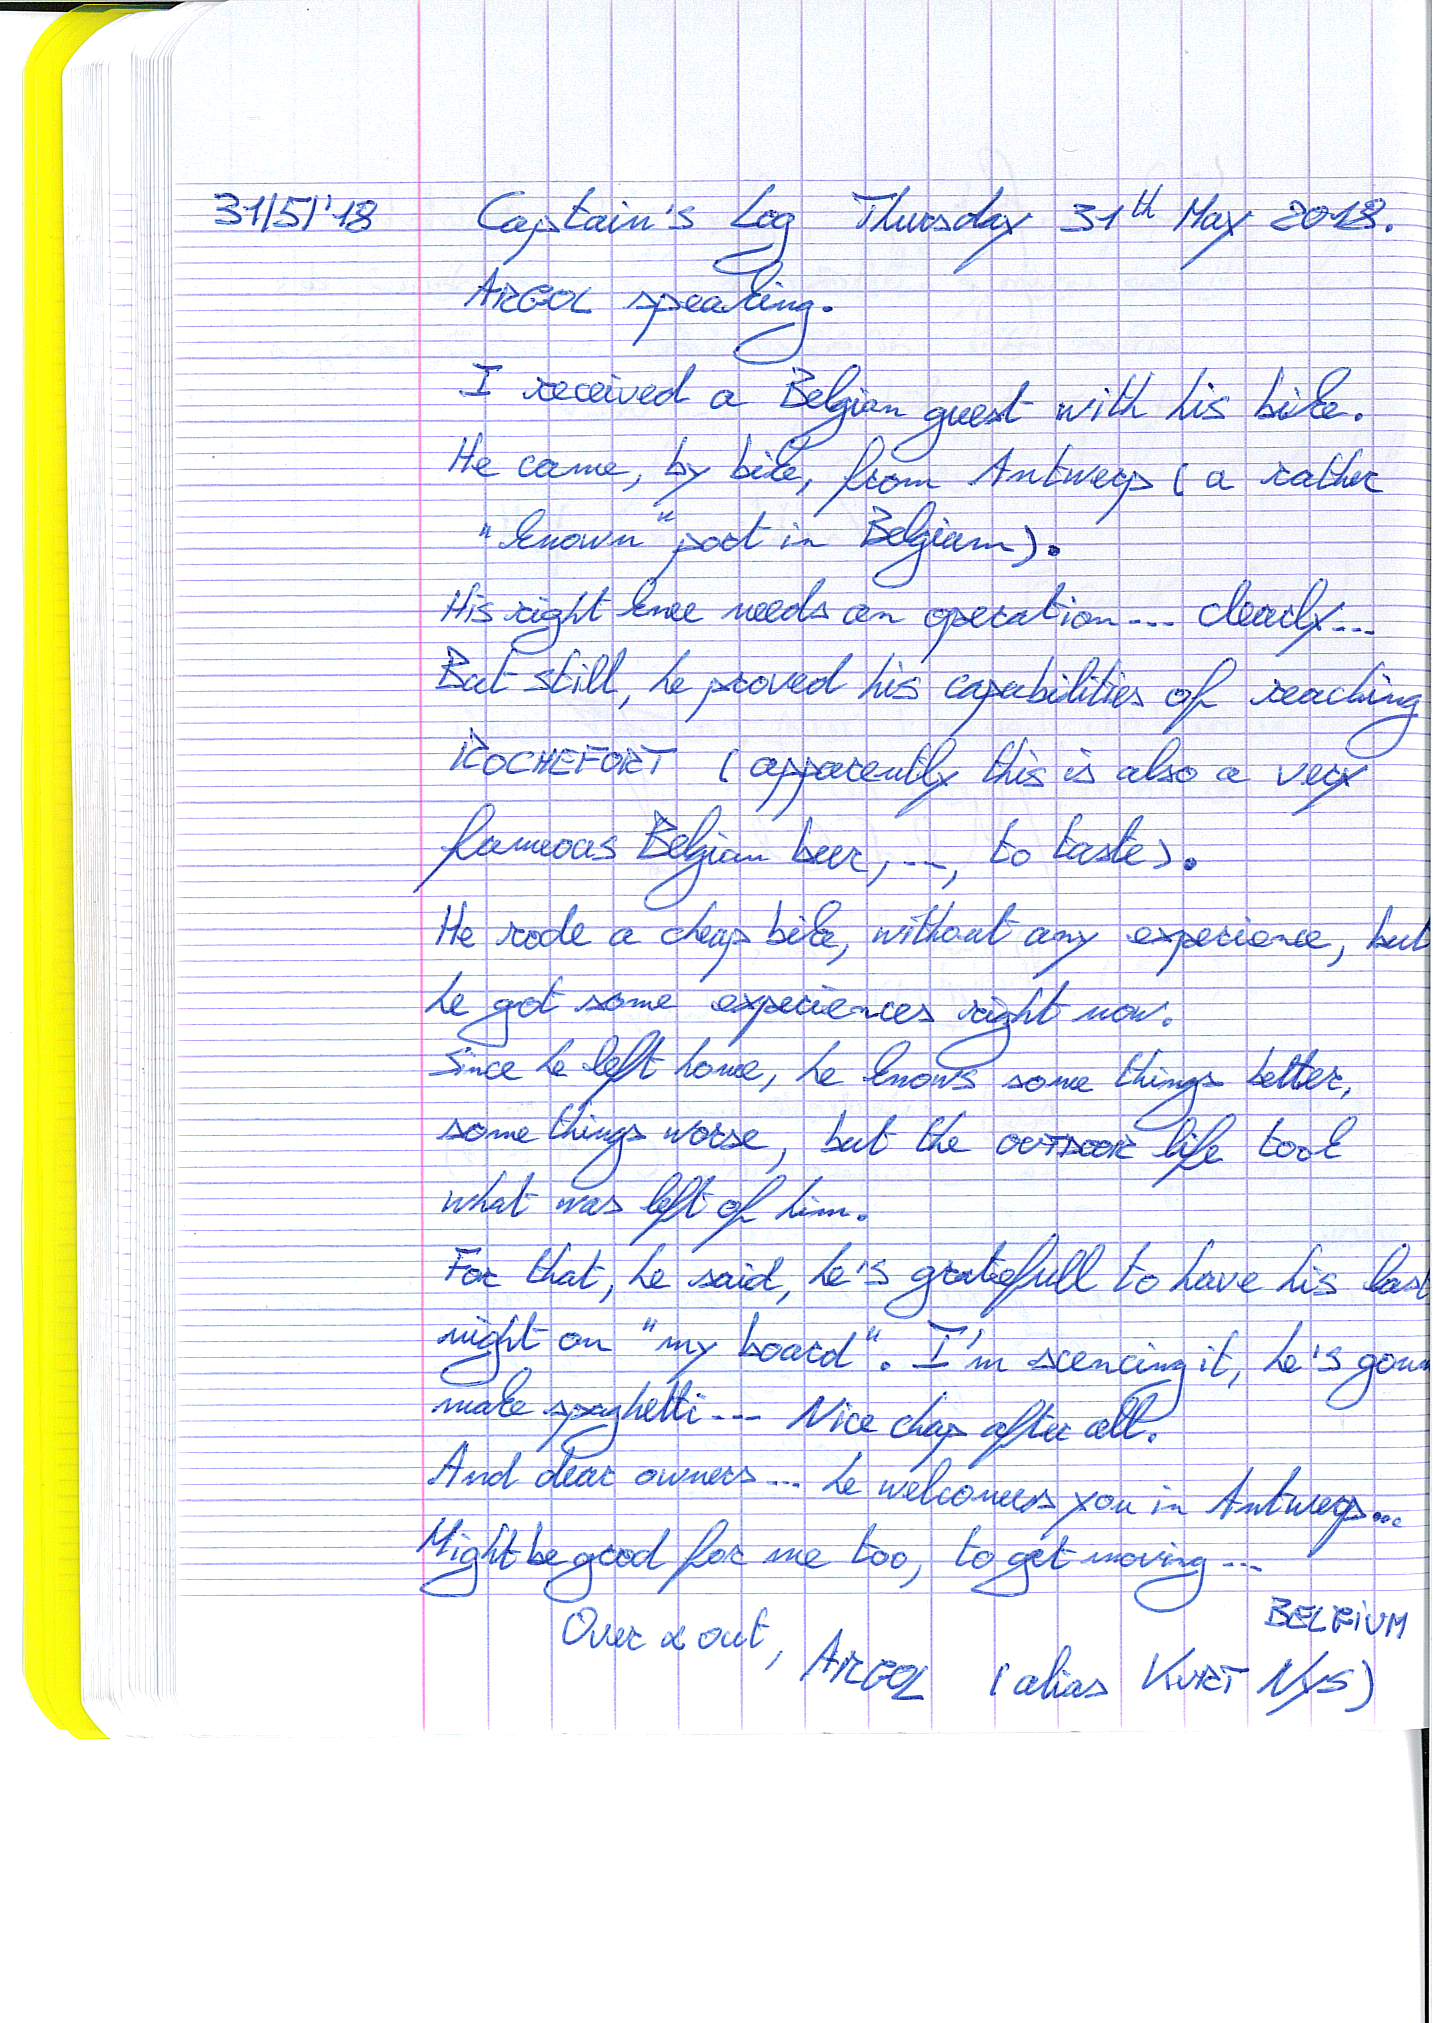 31/5/'18 Captain's Log Thursday 31th May 2018.
ARGOL speaking.
I received a Belgian guest with his bike.
He came, by bike, from Antwerp (a rather
"known" port in Belgium).
His right knee needs an operation --- clearly ---
But still, he proved his capabilities of reaching
ROCHEFORT (apparently this is also a very
fameous Belgian beer, ---, to taste).
He rode a cheap bike, without any experience, but
he got some experiences right now.
Since he left home, he knows some things better,
some things worse, but the OUTDOOR life took
what was left of him.
For that, he said, he's gratefull to have his last
night on "my board". I'm scencing it, he's gonn
make spaghetti --- Nice chap after all.
And dear owners --- he welcomes you in Antwerp...
Might be good for me too, to get moving ---
Over & out, ARGOL (alias KURT NYS)
BELGIUM